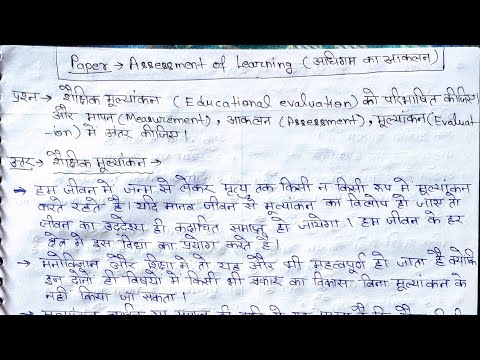 Paper → Assessment of Learning (अधिगम का आकलन)
प्रश्न → शैक्षिक मूल्यांकन (Educational evaluation) को परिभाषित कीजिए।
और मापन (Measurement), आकलन (Assessment), मूल्यांकन (Evaluat-
-ion) में अंतर कीजिए।
उत्तर → शैक्षिक मूल्यांकन →
→ हम जीवन में जन्म से लेकर मृत्यु तक किसी न किसी रूप में मूल्यांकन
करते रहते है। यदि मानव जीवन से मूल्यांकन का विलोप हो जाए तो
जीवन का उद्देश्य ही कदाचित समाप्त हो जायेगा। हम जीवन के हर
क्षेत्र में इस विधा का प्रयोग करते है।
→ मनोविज्ञान और शिक्षा में तो यह और भी महत्वपूर्ण हो जाता है क्योंकि
इन दोनों ही विषयों में किसी भी प्रकार का विकास बिना मूल्यांकन के
नहीं किया जा सकता।